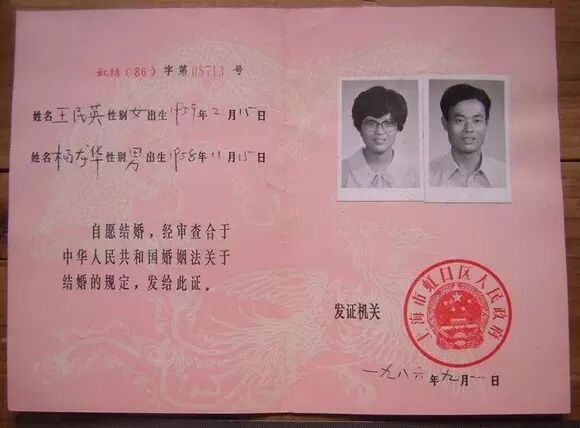 虹结(86)字第05713号
姓名王民英性别女出生1959年2月15日
姓名杨友华性别男出生1958年11月15日
自愿结婚，经审查合于
中华人民共和国婚姻法关于
结婚的规定，发给此证。
发证机关
上海市虹口区人民政府
一九八六年九月一日